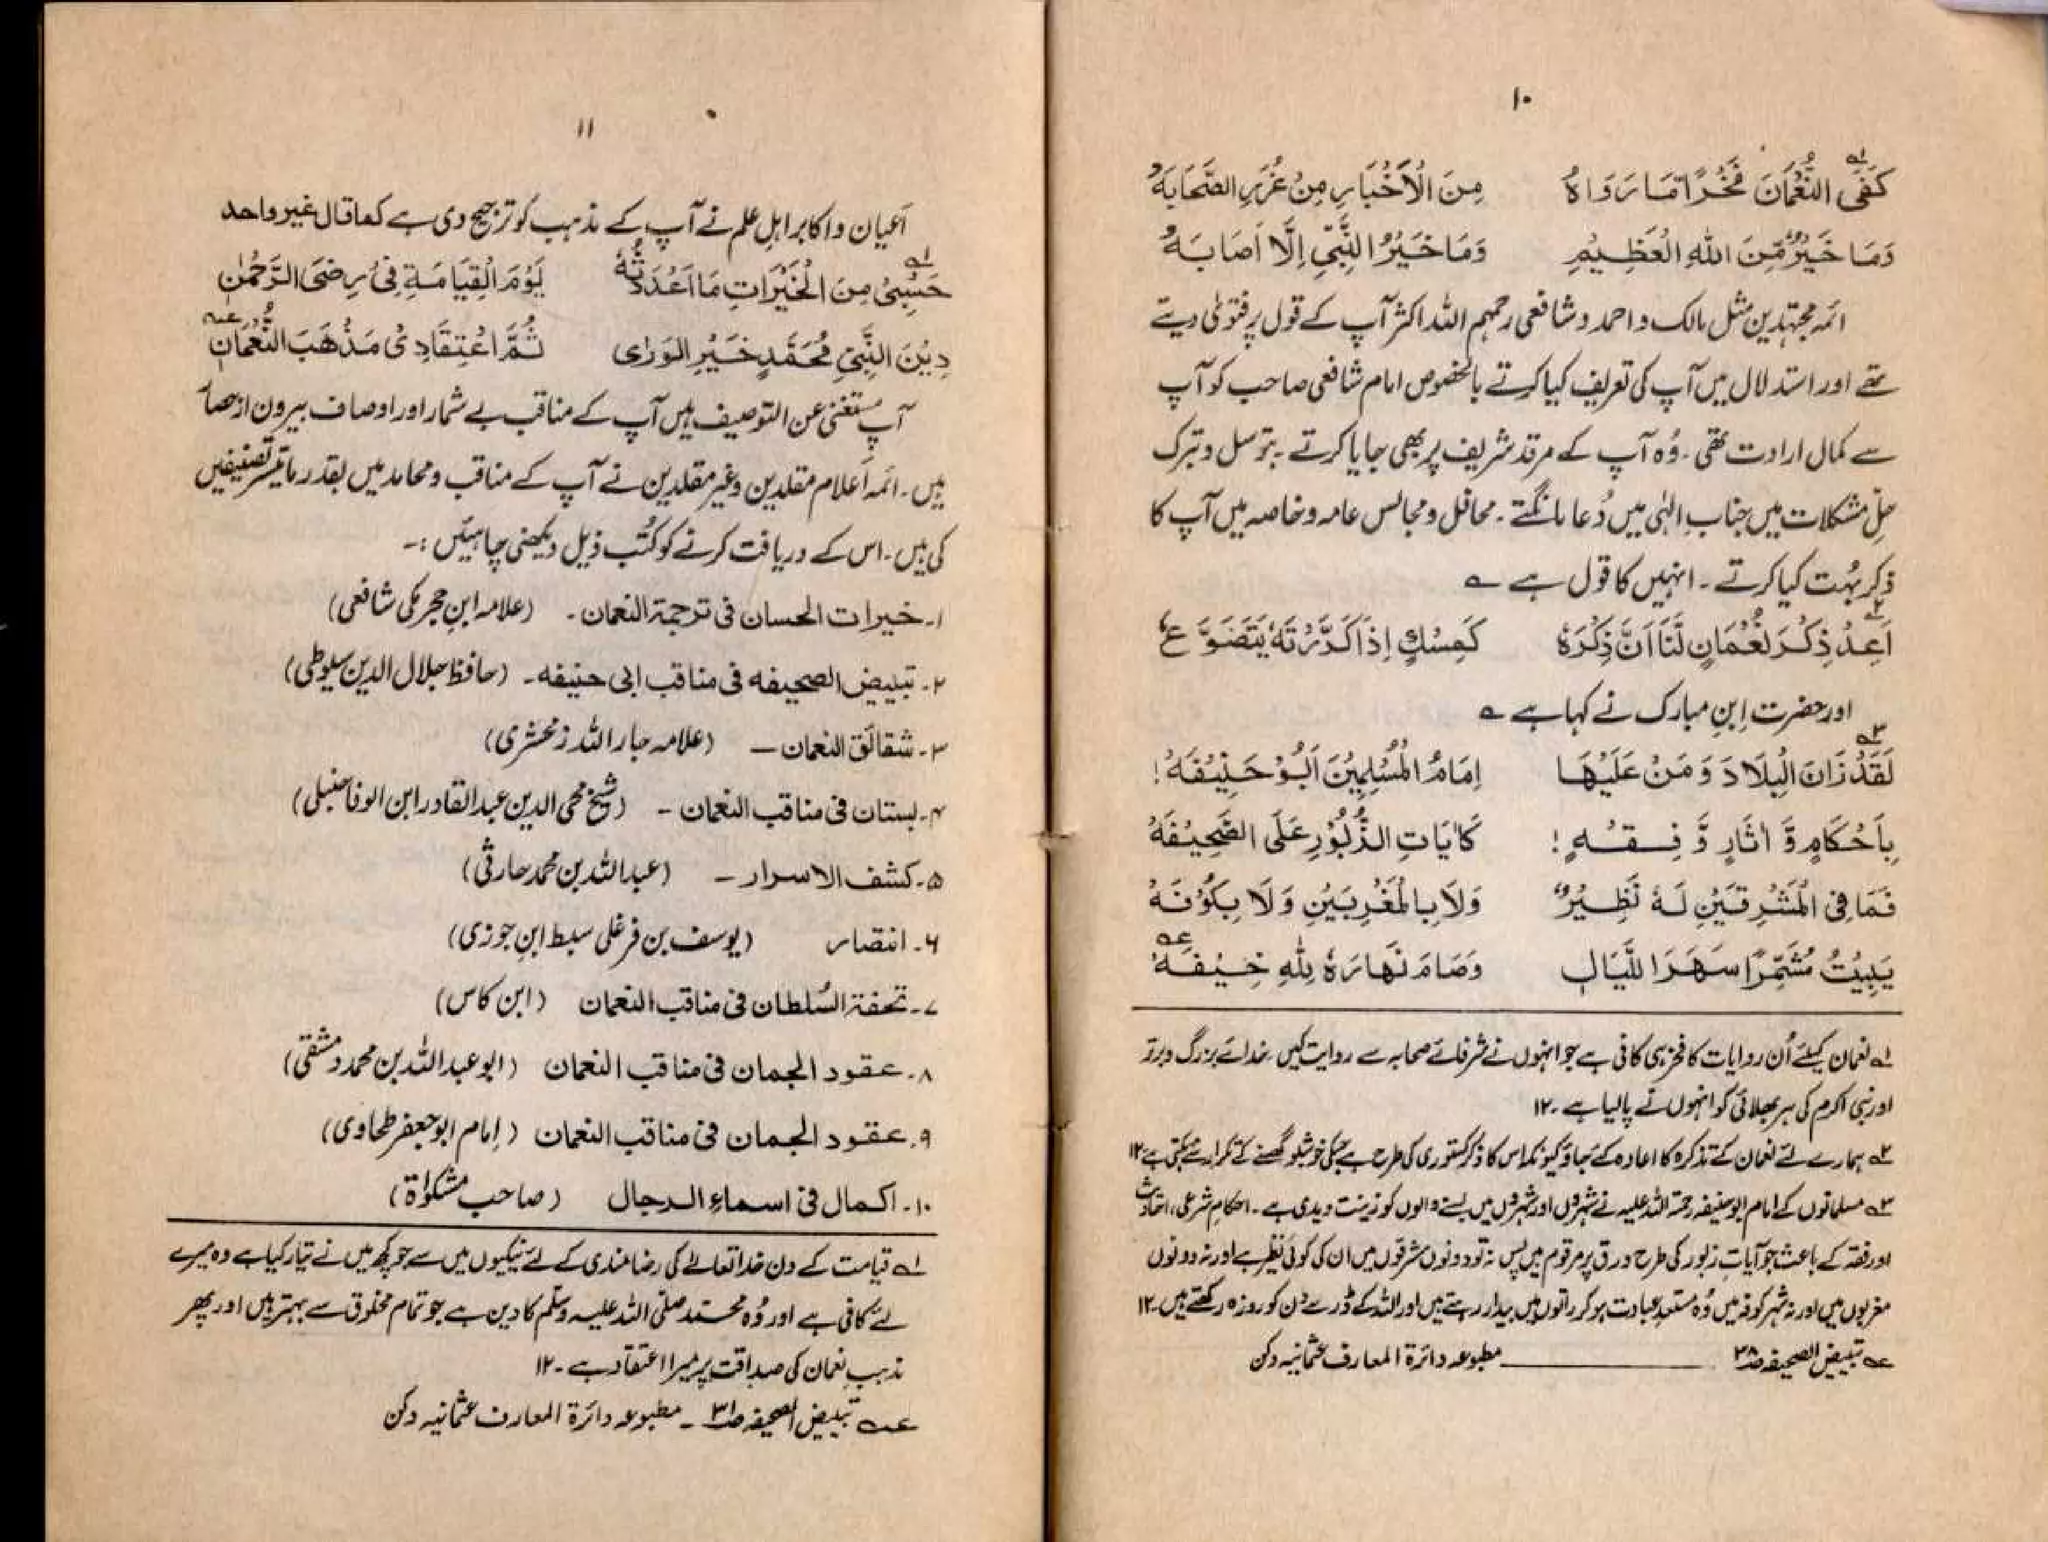 ۱۰
كَفَى النُّعْمَانَ فَخْرًا مَا رَوَاهُ مِنَ الْاَخْبَارِ مِنْ غُرَرِ الصَّحَابَهْ
وَمَا خَيْرٌ مِّنَ اللهِ الْعَظِيْمِ وَمَا خَيْرُ النَّبِّي اِلَّا اَصَابَهْ
ائمہ مجتہدین مثل مالک و احمد و شافعی رحمہم اللہ اکثر آپ کے قول پر فتویٰ دیتے
تھے اور استدلال میں آپ کی تعریف کیا کرتے بالخصوص امام شافعی صاحب کو آپ
سے کمال ارادت تھی۔ وُہ آپ کے مرقد شریف پر بھی جایا کرتے۔ بتوسل و تبرک
حلِ مشکلات میں جنابِ الٰہی میں دُعا مانگتے۔ محافل و مجالس عامہ و خاصہ میں آپ کا
ذکر بہُت کیا کرتے۔ انہیں کا قول ہے ؎
اَعِدْ ذِكْرَ نُعْمَانٍ لَّنَا اَنَّ ذِكْرَهٗ كَمِسْكٍ اِذَا كَرَّرْتَهٗ يَتَضَوَّعُ
اور حضرت اِبنِ مبارک نے کہا ہے ؎
لَقَدْ زَانَ الْبِلَادَ وَمَنْ عَلَيْهَا اِمَامُ الْمُسْلِمِيْنَ اَبُوْ حَنِيْفَهْ!
بِاَحْكَامٍ وَّ اٰثَارٍ وَّ فِقْهٍ! كَاٰيَاتِ الزُّبُوْرِ عَلَى الصَّحِيْفَهْ
فَمَا فِى الْمَشْرِقَيْنِ لَهٗ نَظِيْرٌ وَلَا بِالْمَغْرِبَيْنِ وَلَا بِكُوْفَهْ
يَبِيْتُ مُشَمِّرًا سَهَرَ اللَّيَالِ وَصَامَ نَهَارَهٗ لِلّٰهِ خِيْفَهْ
۱ نعمان کیلئے اُن روایات کا فخر ہی کافی ہے جو انہوں نے شرفائے صحابہ سے روایت کیں۔ خدائے بزرگ و برتر
اور نبی اکرم کی ہر بھلائی کو انہوں نے پالیا ہے۔ ۱۲
۲ ہمارے لئے نعمان کے تذکرہ کا اعادہ کئے جاؤ کیونکہ اس کا ذکر کستوری کی طرح ہے جسکی خوشبو گھسنے کے تکرار سے مہکتی ہے ۱۲
۳ مسلمانوں کے امام ابو حنیفہ رحمۃ اللہ علیہ نے شہروں اور شہروں میں بسنے والوں کو زینت دیدی ہے۔ احکام شرعی، احادیث
اور فقہ کے باعث جو آیات زبور کی طرح ورق پر مرقوم ہیں پس نہ تو دونوں مشرقوں میں ان کی کوئی نظیر ہے اور نہ دونوں
مغربوں میں اور نہ شہر کوفہ میں وُہ مستعدِ عبادت ہو کر راتوں میں بیدار رہتے ہیں اور اللہ کے ڈر سے دن کو روزہ رکھتے ہیں۔ ۱۲
عہ تبییض الصحیفہ صہ ۲۸ مطبوعہ دائرۃ المعارف عثمانیہ دکن
۱۱
اَعیان و اکابر اہلِ علم نے آپ کے مذہب کو ترجیح دی ہے كما قال غير واحد
حَسْبِىْ مِنَ الْخَيْرَاتِ مَا اَعْدَدْتُّهٗ يَوْمَ الْقِيَامَةِ فِىْ رِضَى الرَّحْمٰنِ
دِيْنَ النَّبِىِّ مُحَمَّدٍ خَيْرِ الْوَرٰى ثُمَّ اعْتِقَادِىْ مَذْهَبَ النُّعْمَانِ
آپ مستغنی عن التوصیف ہیں آپ کے مناقب بے شمار اور اوصاف بیرون از حصا
ہیں۔ ائمہ اَعلام مقلدین و غیر مقلدین نے آپ کے مناقب و محامد میں بقدر ماتیسر تصنیفیں
کی ہیں۔ اس کے دریافت کرنے کو کُتب ذیل دیکھنی چاہئیں :۔
۱۔ خیرات الحسان فی ترجمۃ النعمان۔ (علامہ ابنِ حجر مکی شافعی)
۲۔ تبییض الصحیفه فی مناقب ابی حنیفه۔ (حافظ جلال الدین سیوطی)
۳۔ شقائق النعمان — (علامہ جار اللہ زمخشری)
۴۔ بستان فی مناقب النعمان — (شیخ محی الدین عبدالقادر ابن الوفا حنبلی)
۵۔ کشف الاسرار — (عبداللہ بن محمد حارثی)
۶۔ انتصار (یوسف بن فرغلی سبط ابنِ جوزی)
۷۔ تحفۃ السُلطان فی مناقب النعمان (ابن کاس)
۸۔ عقود الجمان فی مناقب النعمان (ابو عبداللہ بن محمد دمشقی)
۹۔ عقود الجمان فی مناقب النعمان (اِمام ابو جعفر طحاوی)
۱۰۔ اکمال فی اسماء الرجال (صاحب مشکوٰۃ)
۱ قیامت کے دن خدا تعالےٰ کی رضا مندی کے لئے نیکیوں میں سے جو کچھ میں نے تیار کیا ہے وہ میرے
لئے کافی ہے اور وُہ محمد صلی اللہ علیہ وسلم کا دین ہے جو تمام مخلوق سے بہتر ہیں اور پھر
مذہب نعمان کی صداقت پر میرا اعتقاد ہے۔ ۱۲
عہ تبییض الصحیفہ صہ ۳۱ ۔ مطبوعہ دائرۃ المعارف عثمانیہ دکن